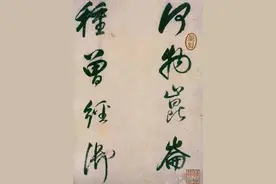 何物崑崙
種曾經御